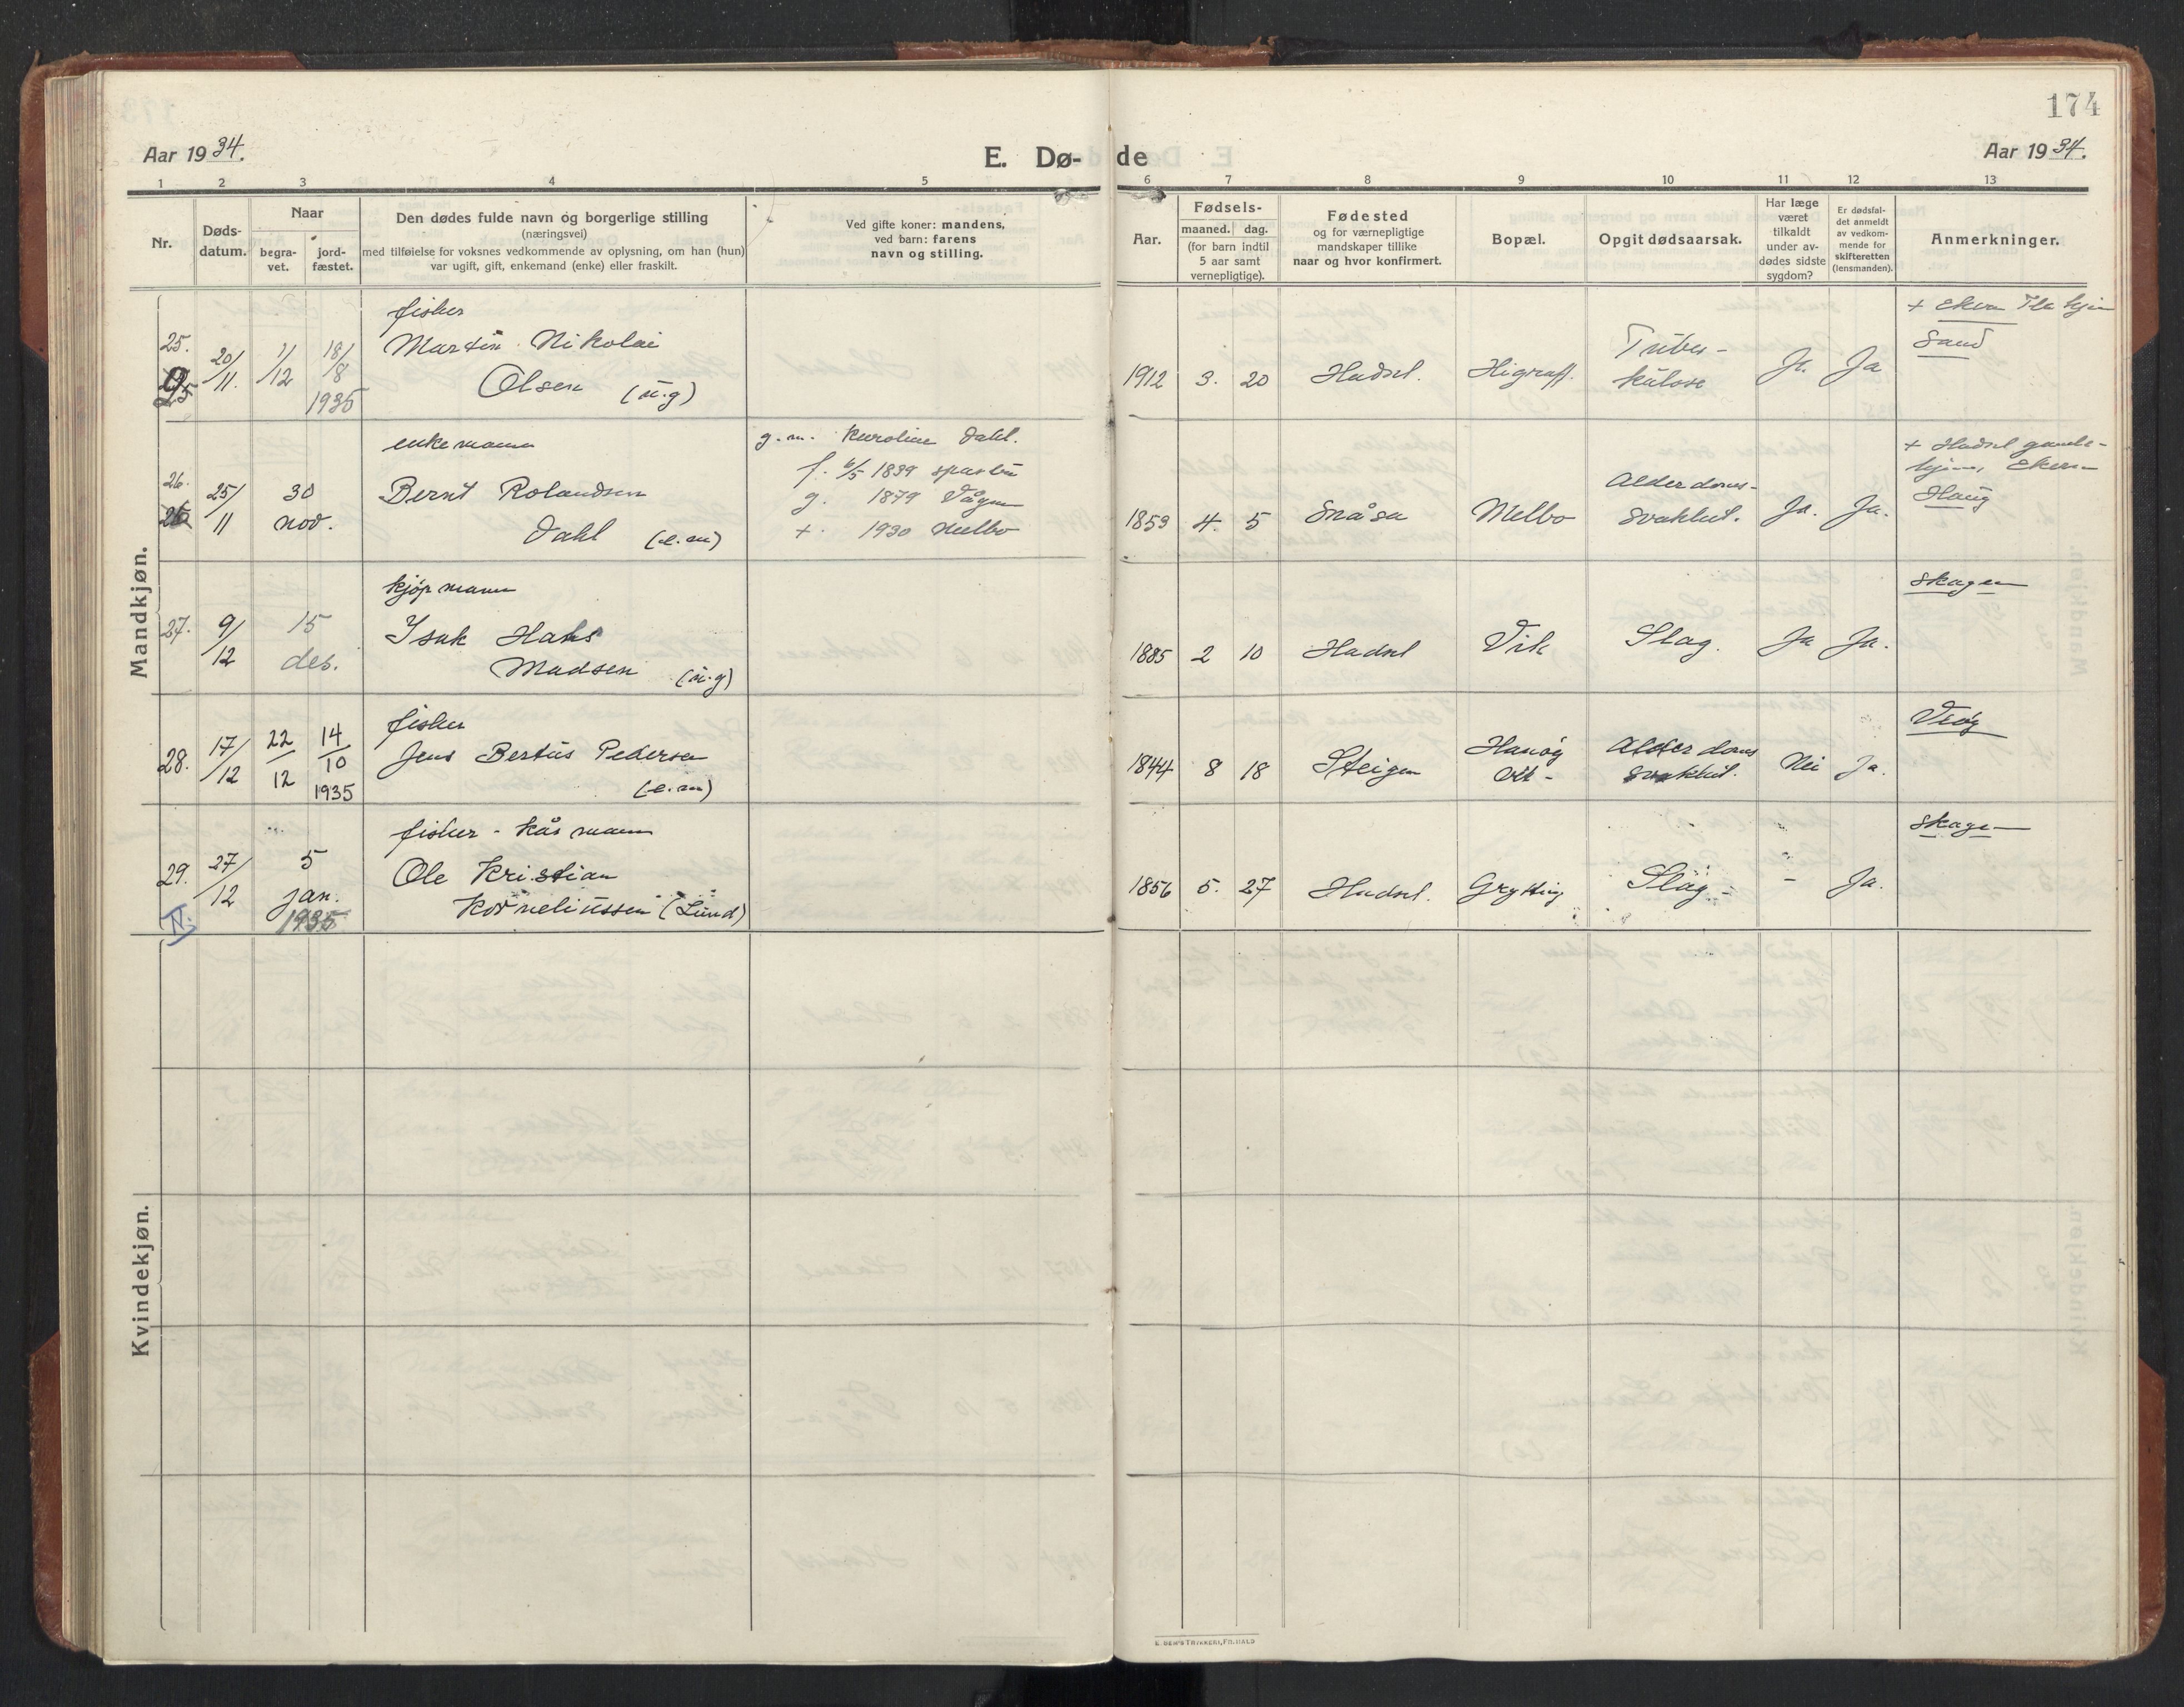 174
Aar 1934.
E. Dø-
de
Aar 1934.
1 2 3 4 5 6 7 8 9 10 11 12 13
Nr.
Døds-
datum.
Naar
begra-
vet.
jord-
fæstet.
Den dødes fulde navn og borgerlige stilling
(næringsvei)
med tilføielse for voksnes vedkommende av oplysning, om han (hun)
var ugift, gift, enkemand (enke) eller fraskilt.
Ved gifte koner: mandens,
ved barn: farens
navn og stilling.
Aar.
Fødsels-
maaned. dag.
(for barn indtil
5 aar samt
vernepligtige).
Fødested
og for værnepligtige
mandskaper tillike
naar og hvor konfirmert.
Bopæl.
Opgit dødsaarsak.
Har læge
været
tilkaldt
under av-
dødes sidste
sygdom?
Er dødsfal-
det anmeldt
av vedkom-
mende for
skifteretten
(lensmanden).
Anmerkninger.
Mandkjøn.
25.
20/11.
1/12
18/8
1935
fisker
Martin Nikolai
Olsen (u.g)
1912 3. 20 Hadsel.
Tuber-
kulose
Ja. Ja
Sand
26.
25/11
30
nov.
enkemann
Bernt Rolandsen
Dahl (e.m)
g.m. Karoline Dahl.
f. 6/5 1839
g. 1879 Vågan
+ 1930 Melbo
1853 4. 5 Snåsa Melbo
Alderdoms-
svakhet.
Ja. Ja.
Haug
27.
9/12
15
des.
kjøpmann
Isak Hans
Madsen (u.g)
1885 2 10 Hadsel Vik Slag. Ja Ja.
Skagen
28.
17/12
22/12
14/10
1935
fisker
Jens Bertus Pedersen
(e.m)
1844 8 18 Steigen
Hanøy
Alderdoms
svakhet.
Nei Ja.
29.
27/12
5
jan.
1935
fisker - kårmann
Ole Kristian
Korneliussen (Lund)
1856 5. 27 Hadsel. Grytting Slag - - Ja.
Skagen
N.
Kvindekjøn.